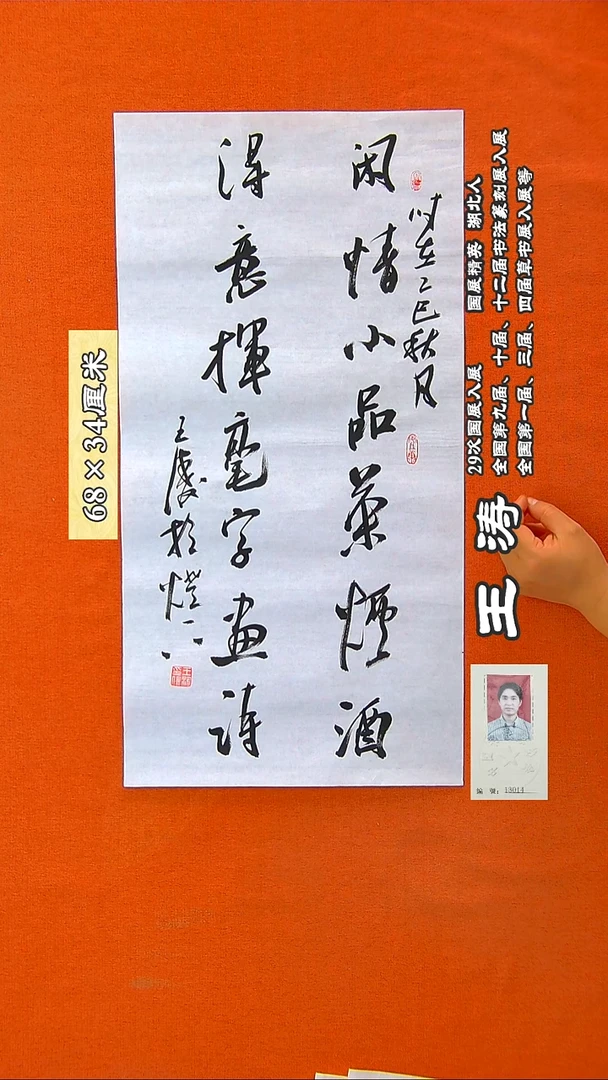 时在乙巳秋月
闲情小品茶煙酒
得意揮毫字畫诗
王濤於燈下
68×34厘米
29次国展入展 国展精英 湖北人
全国第九届、十届、十二届书法篆刻展入展
全国第一届、三届、四届草书展入展等
王 涛
编 號：13014